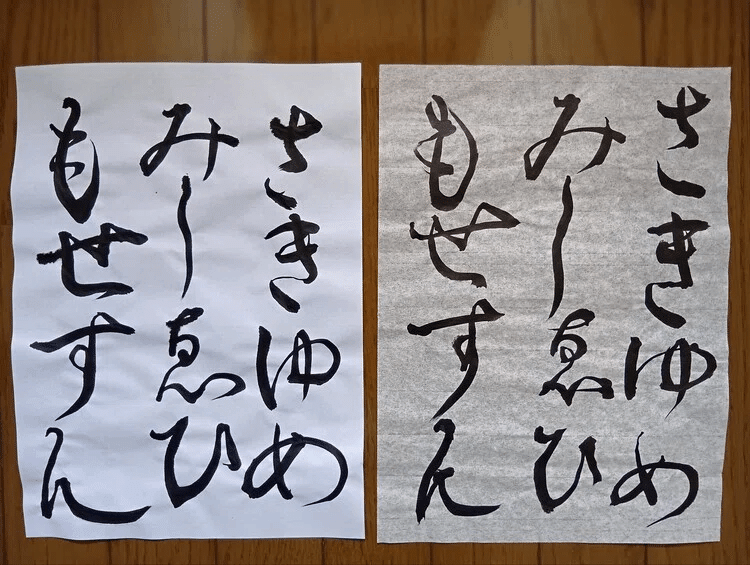 さきゆめ
みしゑひ
もせすん
さきゆめ
みしゑひ
もせすん